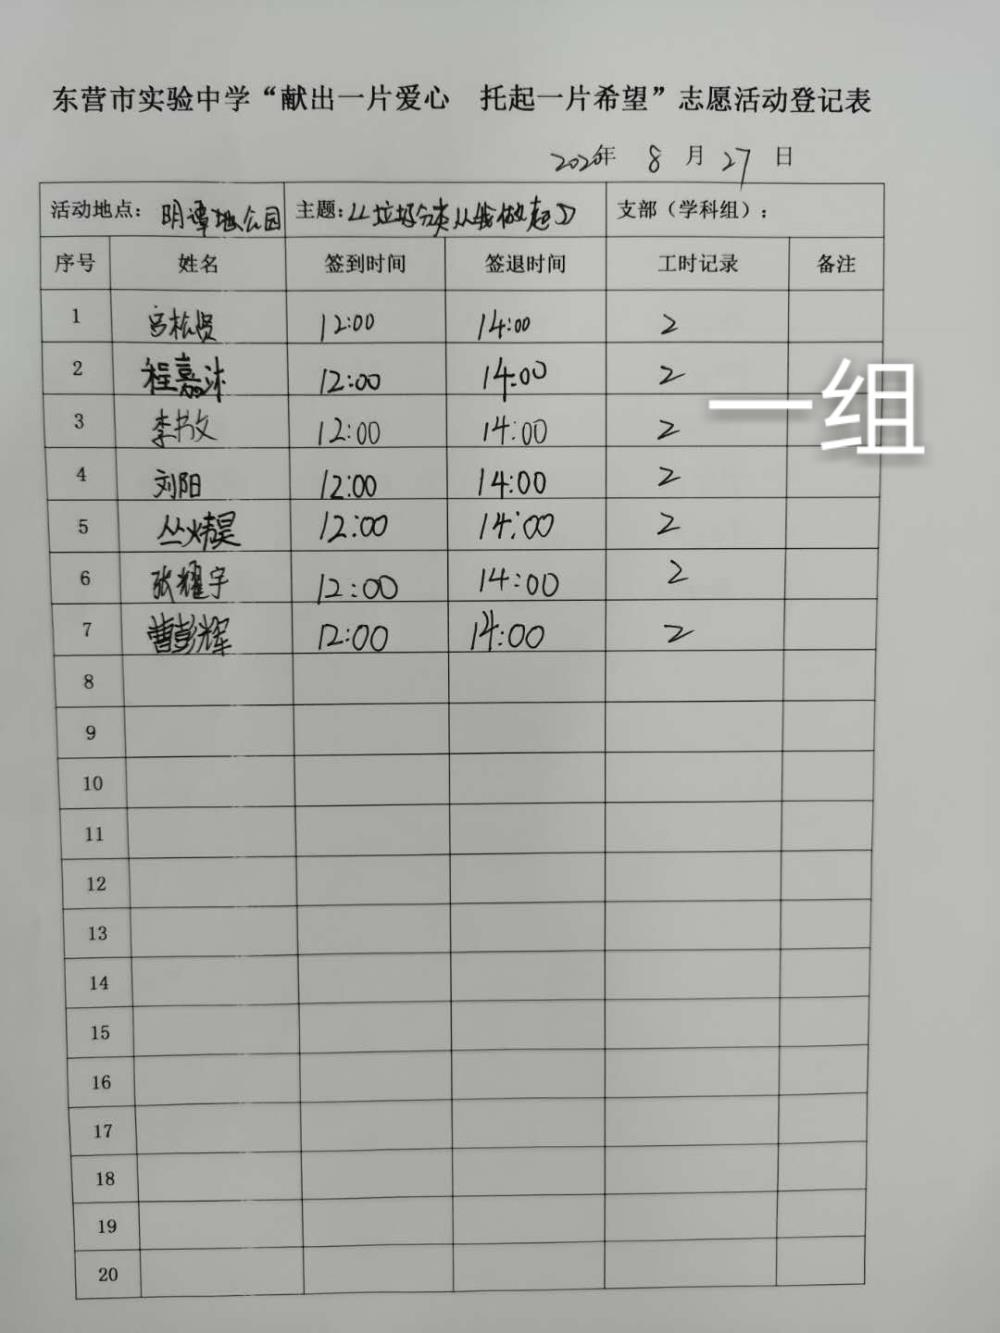 东营市实验中学“献出一片爱心 托起一片希望”志愿活动登记表
2020年 8 月 27 日
活动地点：明潭地公园 主题：《垃圾分类从我做起》 支部（学科组）：
序号 姓名 签到时间 签退时间 工时记录 备注
1 宫松贤 12:00 14:00 2
2 程嘉沭 12:00 14:00 2
一组
3 李书文 12:00 14:00 2
4 刘阳 12:00 14:00 2
5 丛炜昊 12:00 14:00 2
6 张耀宇 12:00 14:00 2
7 曹彭辉 12:00 14:00 2
8
9
10
11
12
13
14
15
16
17
18
19
20